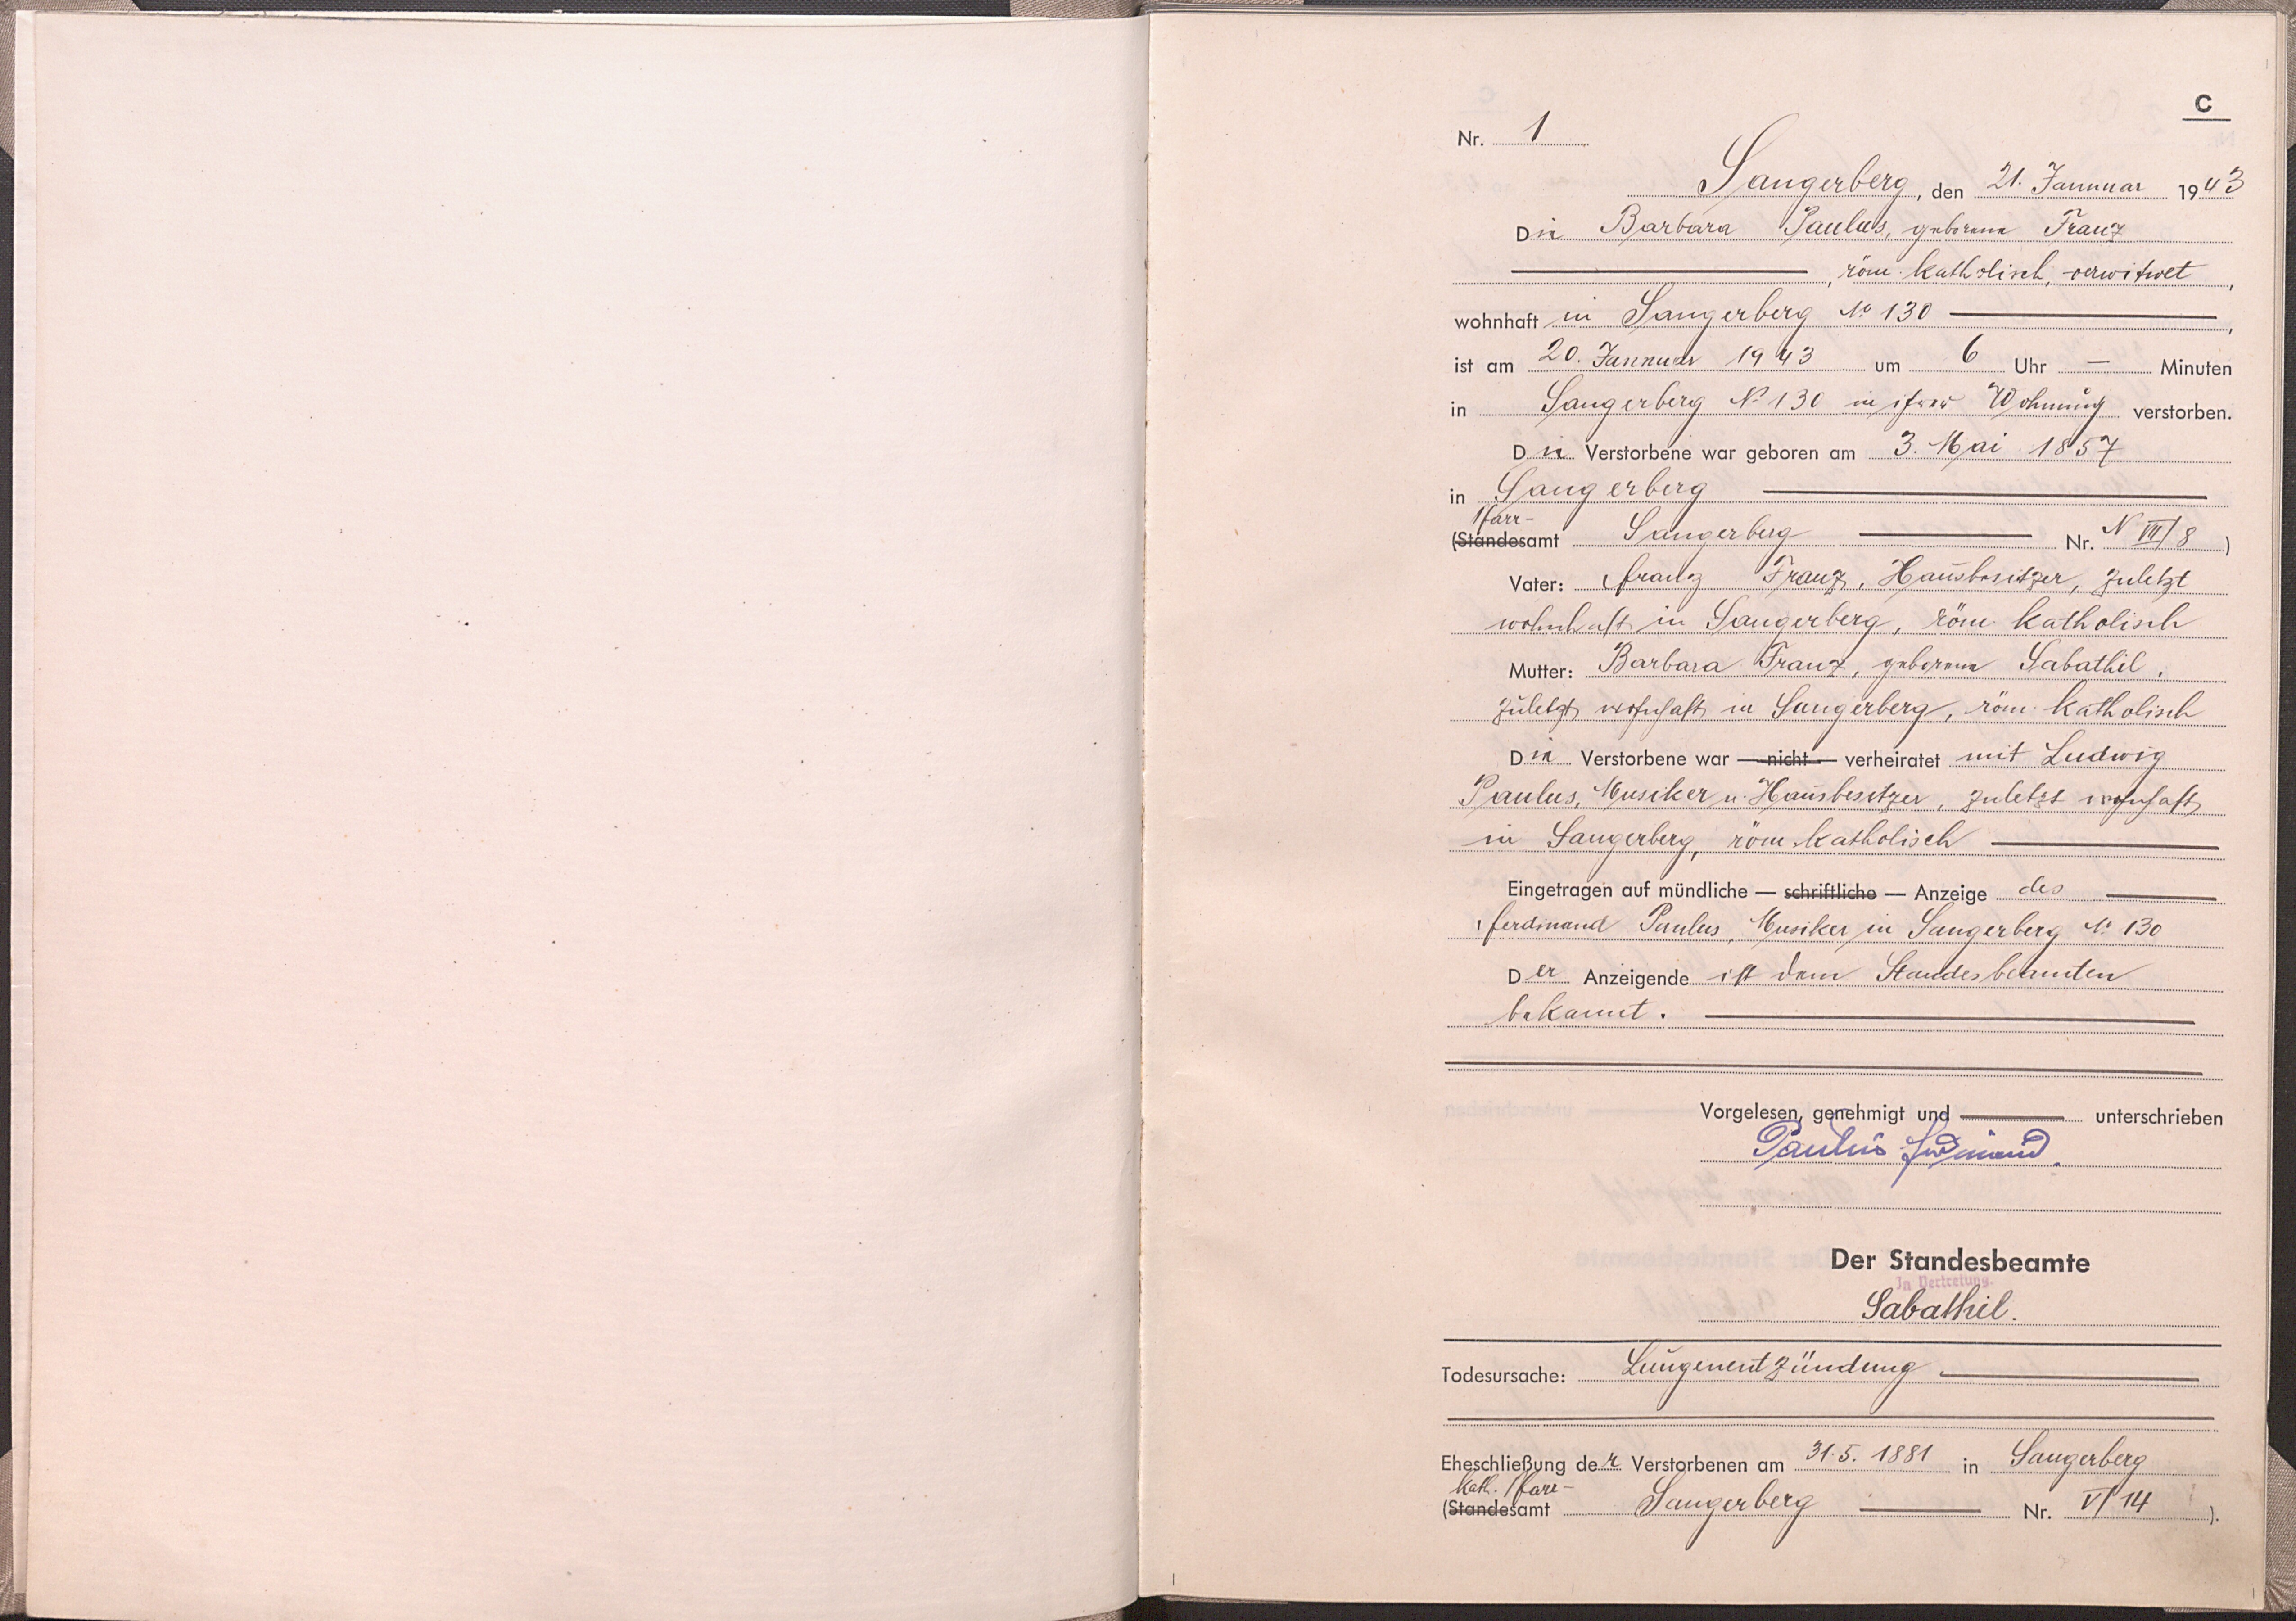 C
Nr. 1
Sangerberg, den 21. Jannuar 1943
Die Barbara Paulus, geborene Franz
, röm. katholisch, verwitwet,
wohnhaft in Sangerberg No 130,
ist am 20. Jannuar 1943 um 6 Uhr — Minuten
in Sangerberg No 130 in ihrer Wohnung verstorben.
Die Verstorbene war geboren am 3. Mai 1857
in Sangerberg
Pfarr-
(Standesamt Sangerberg Nr. N VII/8)
Vater: Franz Franz, Hausbesitzer, zuletzt
wohnhaft in Sangerberg, röm. katholisch
Mutter: Barbara Franz, geborene Sabathil,
zuletzt wohnhaft in Sangerberg, röm. katholisch
Die Verstorbene war — nicht — verheiratet mit Ludwig
Paulus, Musiker u. Hausbesitzer, zuletzt wohnhaft
in Sangerberg, röm. katholisch
Eingetragen auf mündliche — schriftliche — Anzeige des
Ferdinand Paulus, Musiker in Sangerberg No 130
Der Anzeigende ist dem Standesbeamten
bekannt.
Vorgelesen, genehmigt und unterschrieben
Paulus Ferdinand.
Der Standesbeamte
In Vertretung.
Sabathil.
Todesursache: Lungenentzündung
Eheschließung der Verstorbenen am 31.5.1881 in Sangerberg
kath. Pfarr-
(Standesamt Sangerberg Nr. V/14).